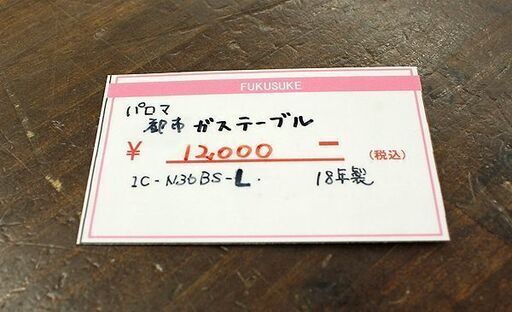 FUKUSUKE
パロマ
都市ガステーブル
¥ 12,000 ー (税込)
IC-N36BS-L. 18年製